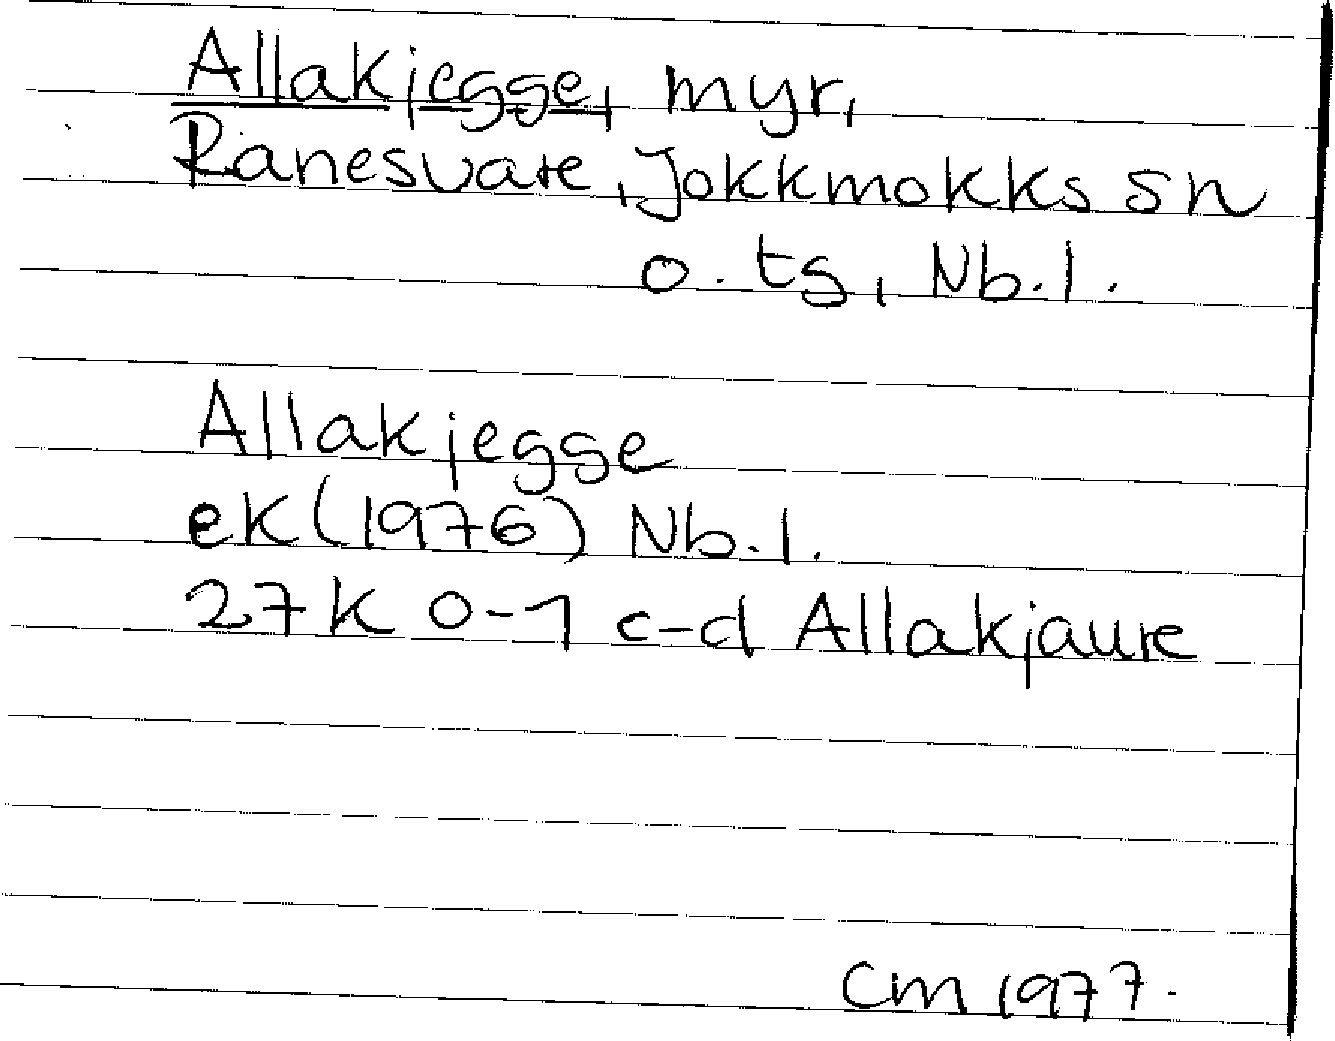 Allakjegge, myr,
Ranesvare, Jokkmokks sn
o. ts, Nb.l.
Allakjegge
ek (1976) Nb.l.
27K 0-1 c-d Allakjaure
CM 1977.